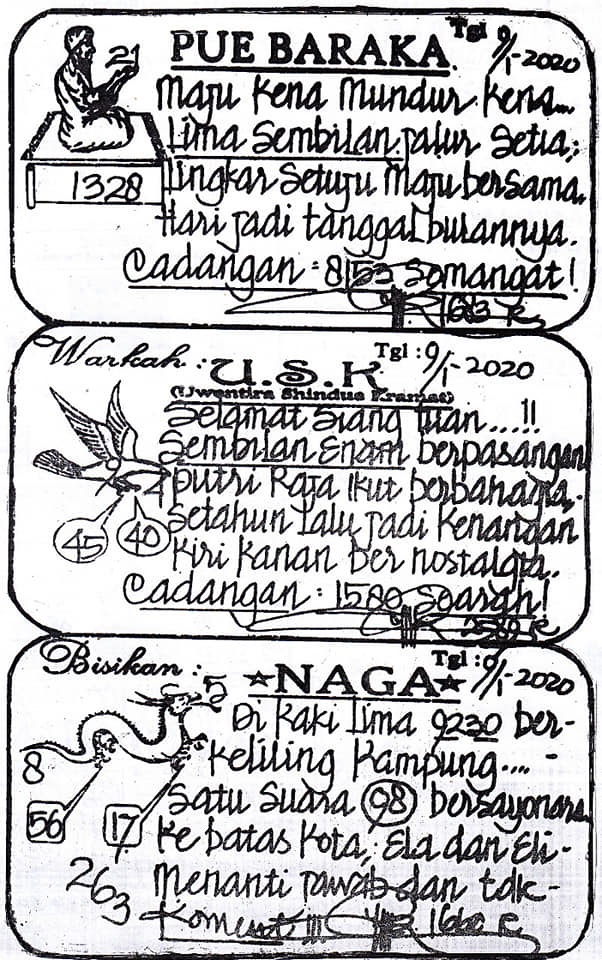 21
1328
PUE BARAKA
Tgl 9/1-2020
Maju Kena Mundur Kena...
Lima Sembilan jalur Setia;
Lingkar Setuju Maju bersama.
Hari jadi tanggal bulannya.
Cadangan = 8153 Semangat!
Warkah :
U.S.K
Tgl : 9/1-2020
(Uwentira Shindua Kramat)
Selamat Siang tuan....!!
Sembilan Enam berpasangan
putri Raja Ikut berbahagia,-
Setahun Lalu jadi Kenangan
Kiri Kanan ber nostalgia.
45
40
Cadangan : 1580 Searah!
Bisikan :
NAGA
Tgl : 9/1-2020
5
8
56
17
263
Di Kaki lima 9230 ber-
Keliling Kampung.... -
Satu Suara 98 bersayonara
Ke batas Kota, Ela dan Eli-
Menanti jawab dan tdk-
Koment !!!